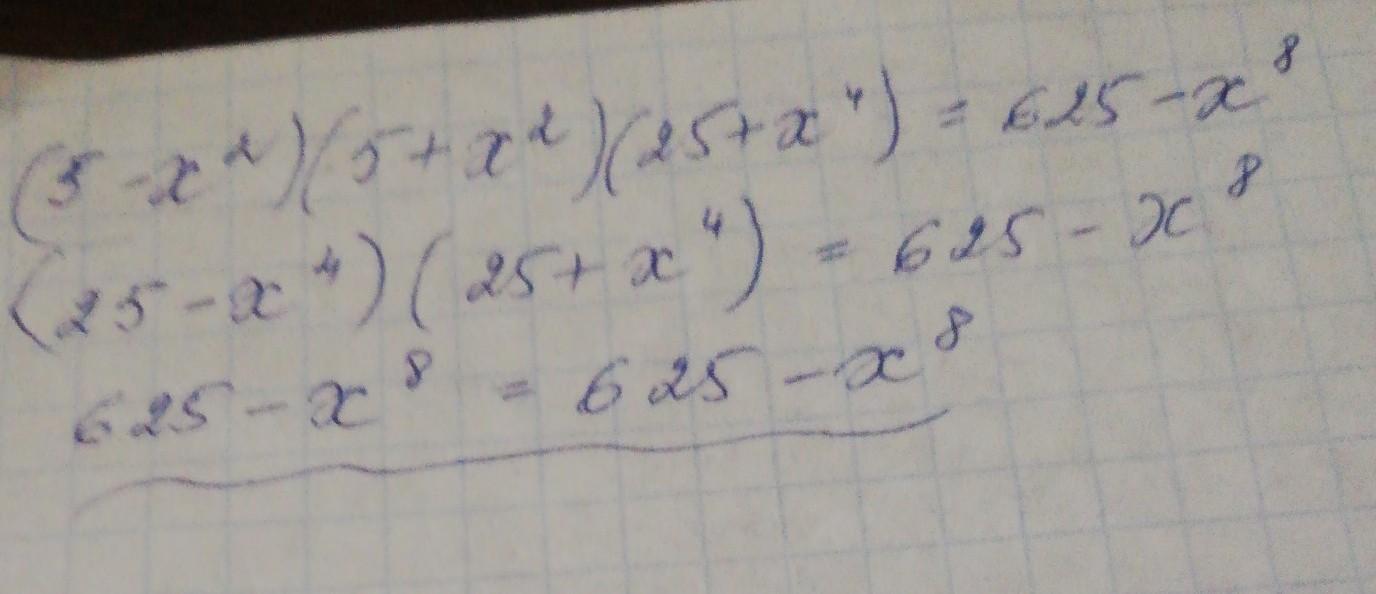 (5-x²)(5+x²)(25+x⁴) = 625-x⁸
(25-x⁴)(25+x⁴) = 625-x⁸
625-x⁸ = 625-x⁸